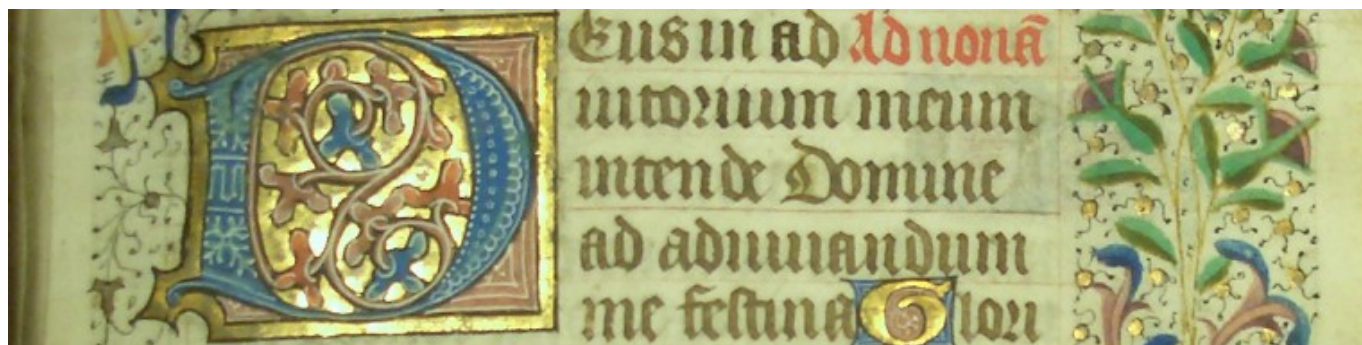 DEus in ad Ad nonā
iutorium meum
intende Domine
ad adiuuandum
me festina Glori